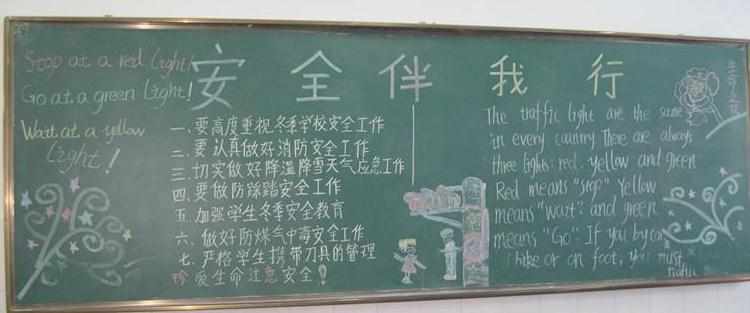 安全伴我行
Stop at a red light!
Go at a green light!
Wait at a yellow
light!
一、要高度重视冬季学校安全工作
二、要认真做好消防安全工作
三、切实做好降温降雪天气应急工作
四、要做防踩踏安全工作
五、加强学生冬季安全教育
六、做好防煤气中毒安全工作
七、严格学生携带刀具的管理
珍爱生命注意安全!
The traffic light are the same
in every country There are always
three lights: red. yellow and green
Red means "stop" Yellow
means "wait" and green
means "Go". If you by car
bike or on foot, you must